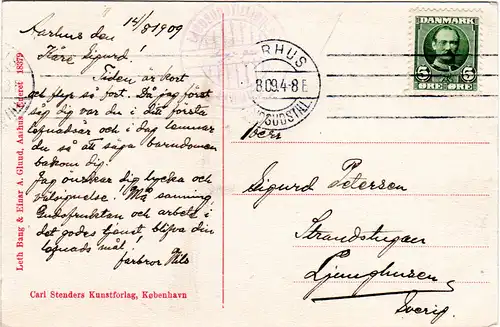 Aarhus den 14/8 1909
Käre Sigurd!
Tiden är kort
och flyr så fort. Då jag först
såg dig var du i ditt första
lefnadsår och i dag lemnar
du så att säga barndomen
bakom dig.
Jag önskar dig lycka och
välsignelse! Må sanning,
Gudsfruktan och arbete i
det godas tjänst, blifva din
lefnads mål!
farbror Nils
Leth Bang & Einar A. Glund, Aarhus. Eneret 18379
Carl Stenders Kunstforlag, København
RHUS
8.09.4-8 E
DANMARK
5 5
ØRE ØRE
Sigurd Peterson
Ljunghusen
Sverig.